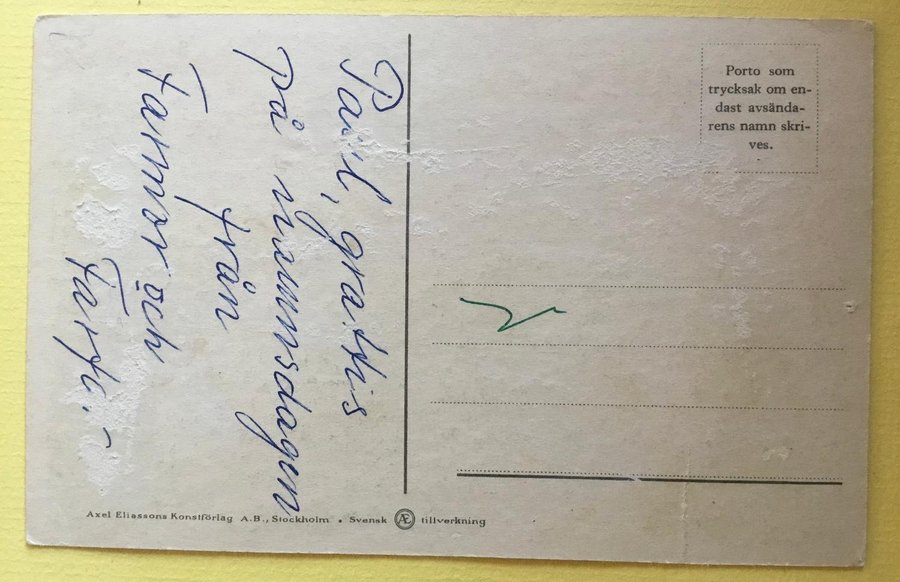 Paul, grattis
på namnsdagen
från
Farmor och
Porto som
trycksak om en-
dast avsända-
rens namn skri-
ves.
Axel Eliassons Konstförlag A.B., Stockholm • Svensk Æ tillverkning